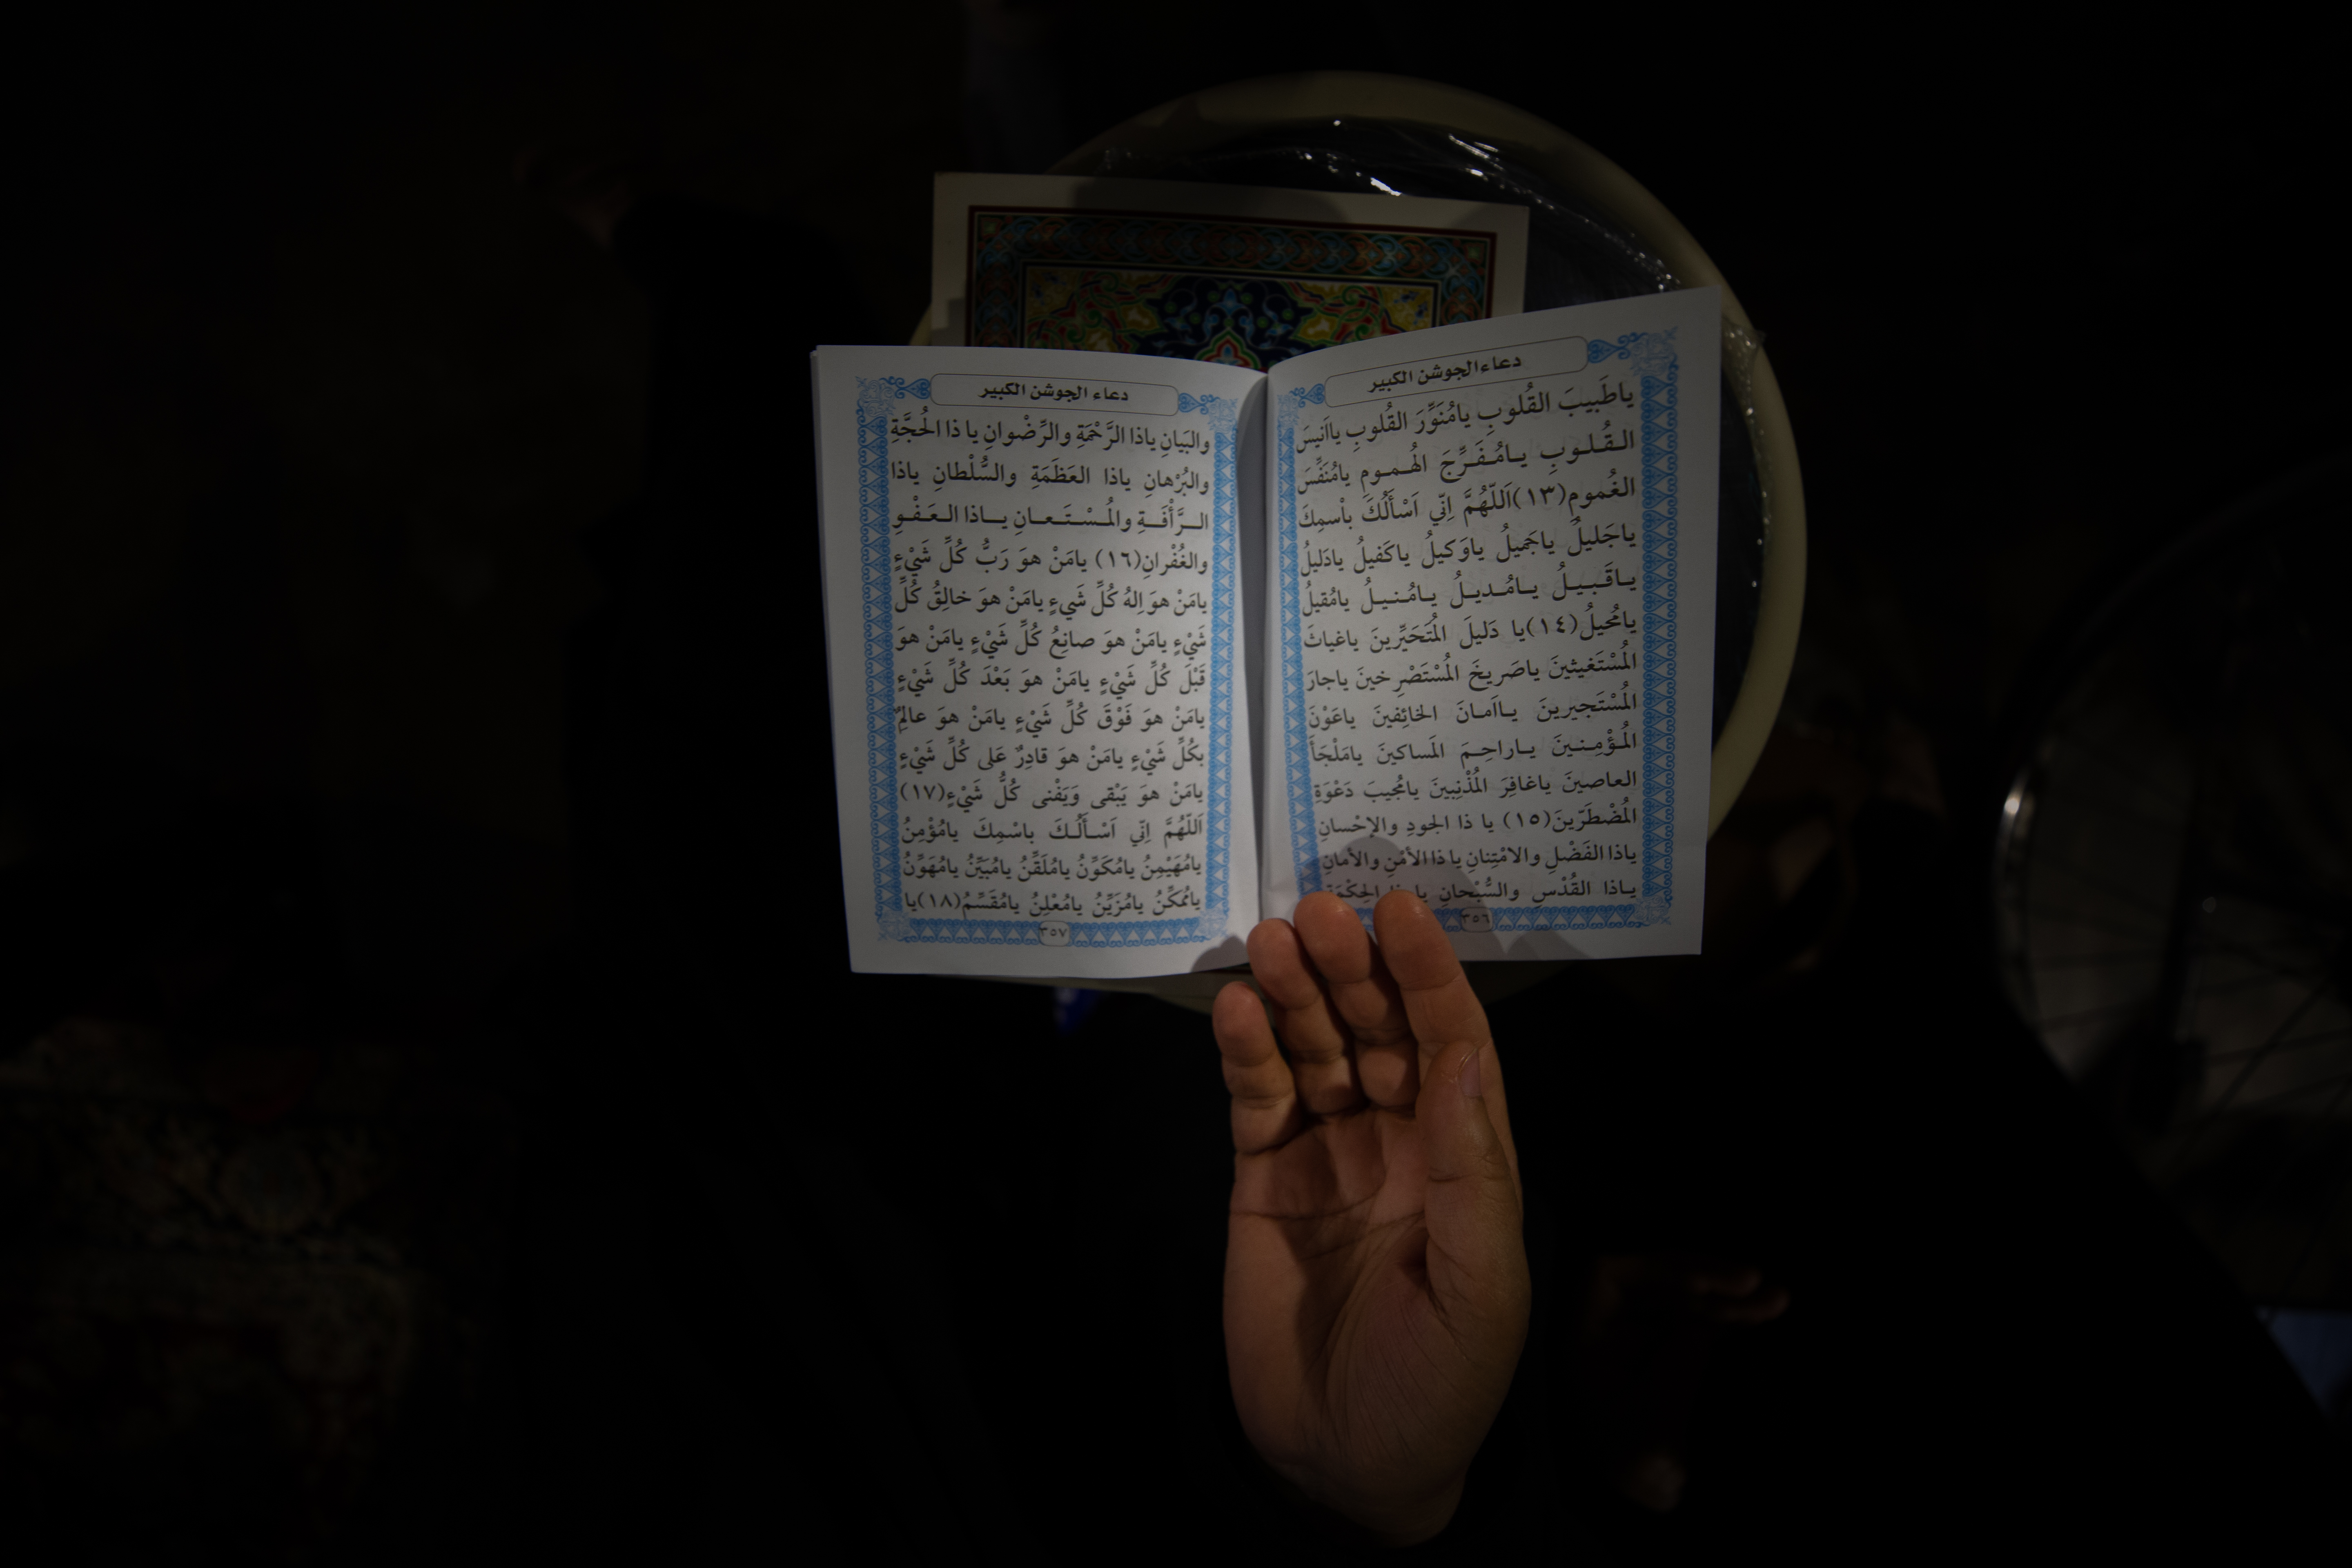 دعاء الجوشن الكبير
ياطَبيبَ القُلوبِ يامُنَوِّرَ القُلوبِ يااَنيسَ
الـقُـلـوبِ يـامُـفَـرِّجَ الهُـمـومِ يامُنَفِّسَ
الغُمومِ(١٣)اَللّهُمَّ اِنّي اَسْأَلُكَ بأسمِكَ
ياجَليلُ ياجَميلُ ياوَكيلُ ياكَفيلُ يادَليلُ
يـاقَـبـيـلُ يـامُـديـلُ يـامُـنـيـلُ يامُقيلُ
يامُحيلُ(١٤)يا دَليلَ المُتَحَيِّرينَ ياغياثَ
المُسْتَغيثينَ ياصَريخَ المُسْتَصْرِخينَ ياجارَ
المُسْتَجيرينَ يـااَمـانَ الخائِفينَ ياعَوْنَ
المُـؤْمِـنـينَ يـاراحِـمَ المَساكينَ يامَلْجَأَ
العاصينَ ياغافِرَ المُذْنِبينَ يامُجيبَ دَعْوَةِ
المُضْطَرّينَ(١٥) يا ذا الجودِ والإحْسانِ
ياذا الفَضْلِ والامْتِنانِ يا ذا الأَمْنِ والأمانِ
يـاذا القُدْسِ والسُّبْحانِ يا ذا الحِكْمَةِ
٣٥٦
دعاء الجوشن الكبير
والبَيانِ ياذا الرَّحْمَةِ والرِّضْوانِ يا ذا الحُجَّةِ
والبُرْهانِ ياذا العَظَمَةِ والسُّلْطانِ ياذا
الـرَّأْفَـةِ والمُـسْـتَـعـانِ يـاذا الـعَـفْـوِ
والغُفْرانِ(١٦) يامَنْ هوَ رَبُّ كُلِّ شَيْءٍ
يامَنْ هوَ اِلهُ كُلِّ شَيءٍ يامَنْ هوَ خالِقُ كُلِّ
شَيْءٍ يامَنْ هوَ صانِعُ كُلِّ شَيْءٍ يامَنْ هوَ
قَبْلَ كُلِّ شَيْءٍ يامَنْ هوَ بَعْدَ كُلِّ شَيْءٍ
يامَنْ هوَ فَوْقَ كُلِّ شَيْءٍ يامَنْ هوَ عالِمٌ
بكُلِّ شَيْءٍ يامَنْ هوَ قادِرٌ عَلى كُلِّ شَيْءٍ
يامَنْ هوَ يَبْقى وَيَفْنى كُلُّ شَيْءٍ(١٧)
اَللّهُمَّ اِنّي اَسْـأَلُـكَ باسْمِكَ يامُؤْمِنُ
يامُهَيْمِنُ يامُكَوِّنُ يامُلَقِّنُ يامُبَيِّنُ يامُهَوِّنُ
يامُمَكِّنُ يامُزَيِّنُ يامُعْلِنُ يامُقَسِّمُ(١٨)يا
٣٥٧